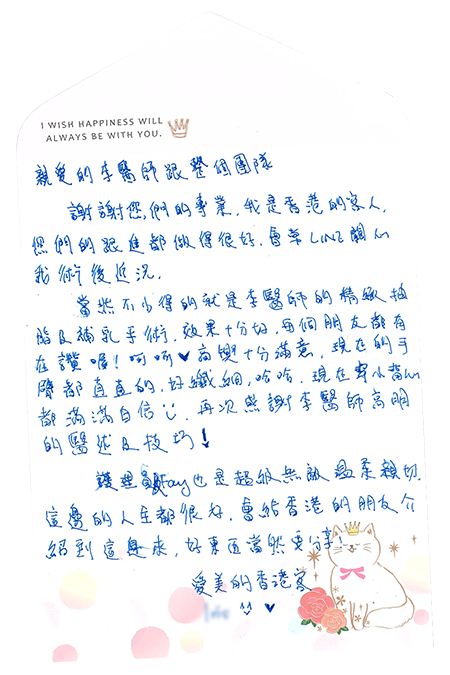 I WISH HAPPINESS WILL
ALWAYS BE WITH YOU.
親愛的李醫師跟整個團隊
謝謝您們的專業,我是香港的客人,
您們的跟進都做得很好,會第LINE關心
我術後近況.
當然不少得的就是李醫師的精緻抽
脂及補乳手術,效果十分好,每個朋友都有
在讚喔!呵呵♥高興十分滿意,現在的手
臂都直直的,好纖細,哈哈,現在穿小背心
都滿滿自信,再次感謝李醫師高明
的醫術及技巧!
護理師Fay也是超級無敵溫柔親切,
這邊的人全都很好,會給香港的朋友介
紹到這邊來,好東西當然要分享!
愛美的香港客